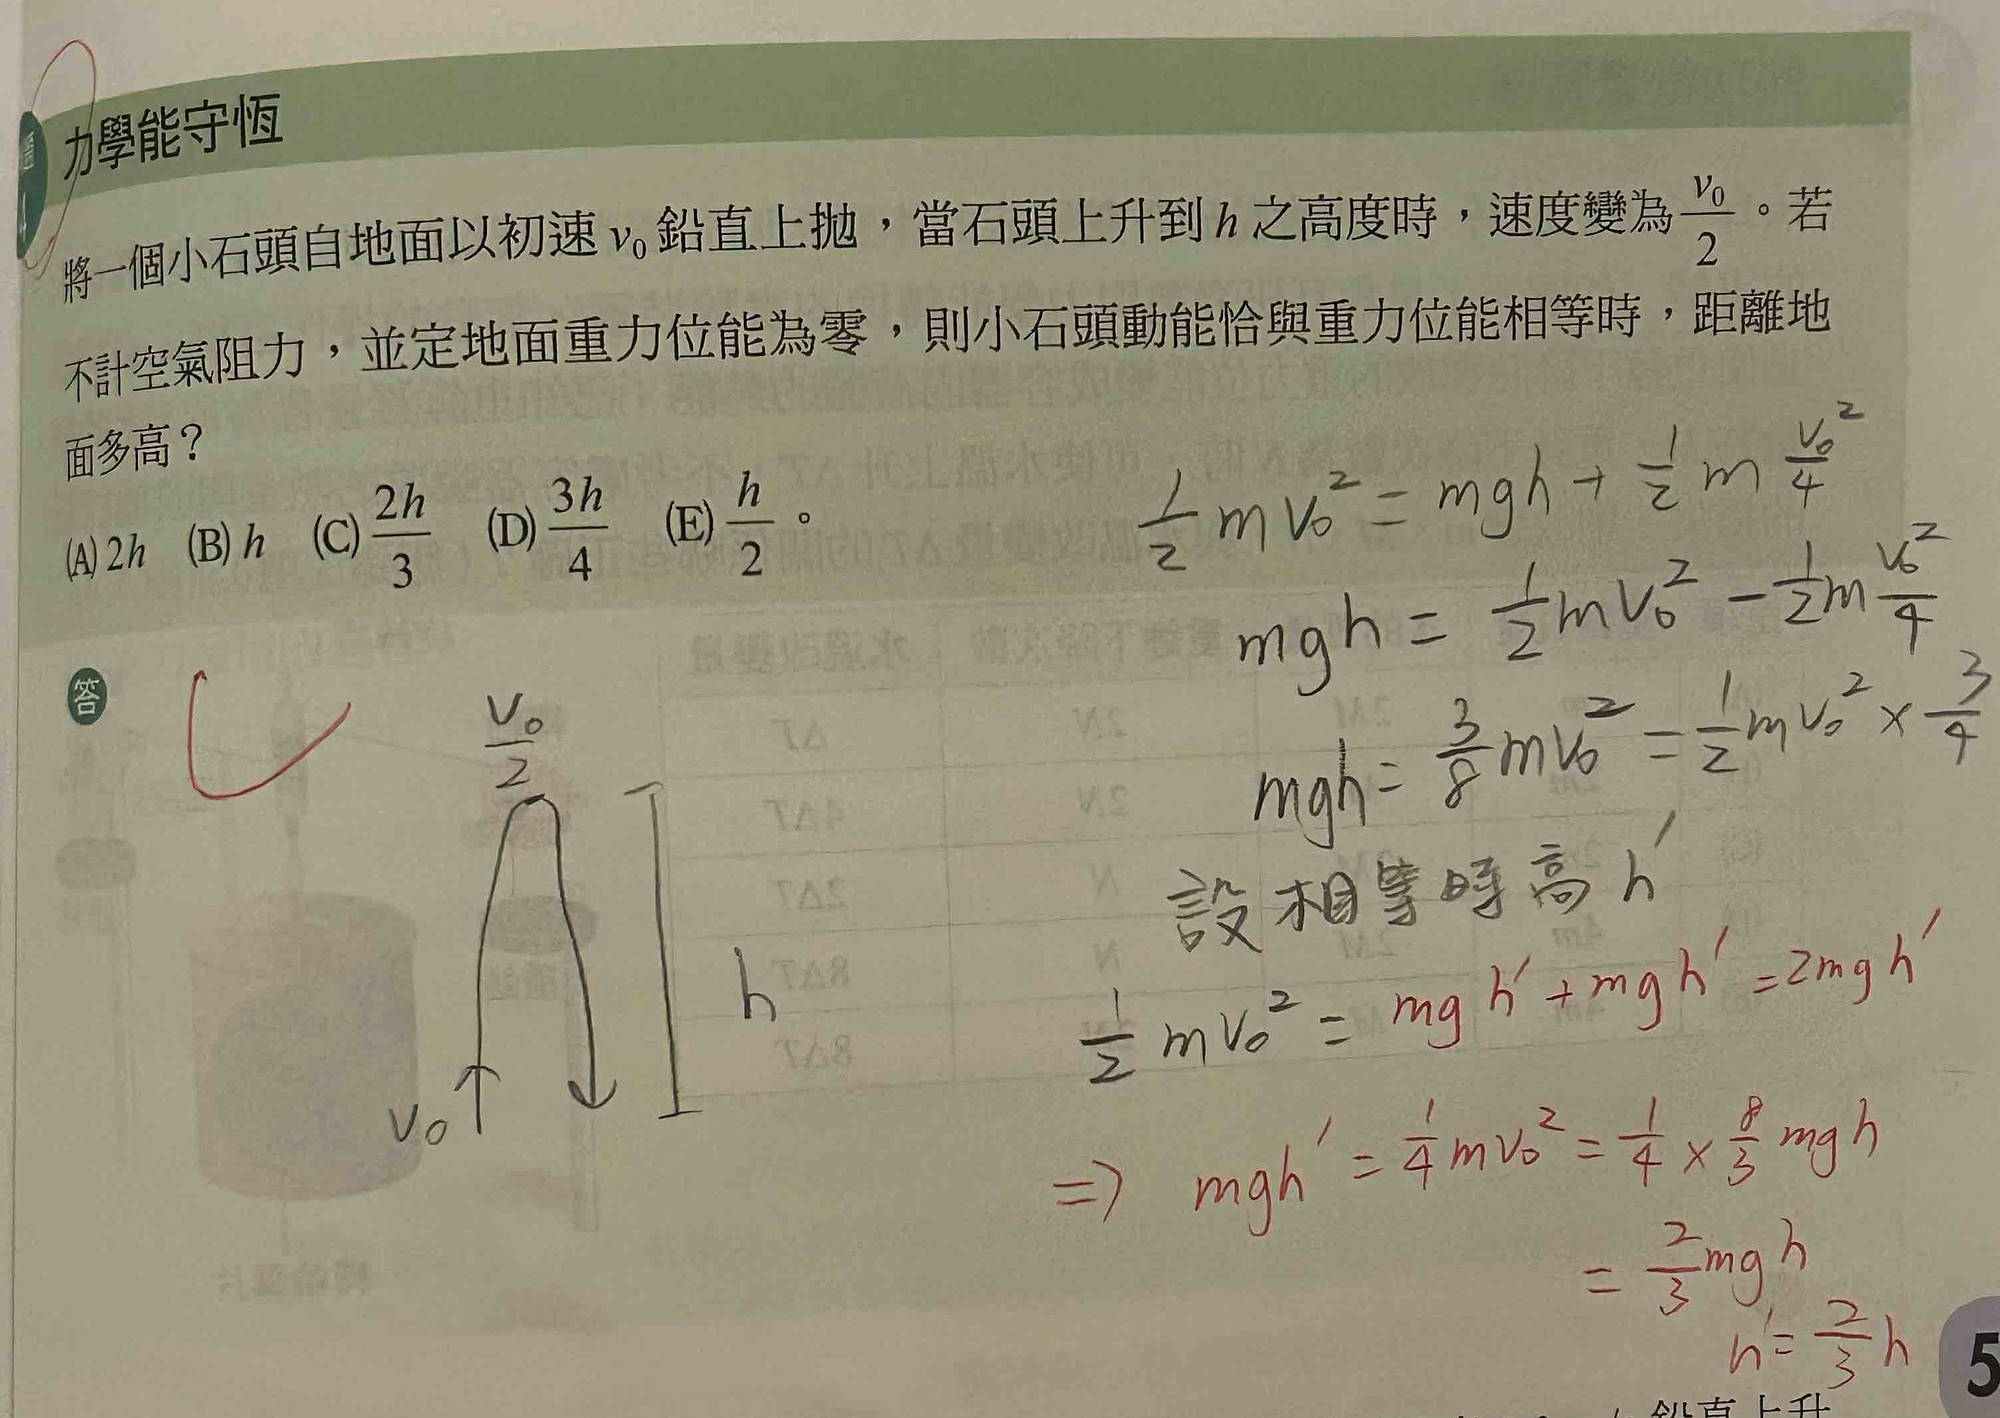 力學能守恆
將一個小石頭自地面以初速 v₀ 鉛直上拋，當石頭上升到 h 之高度時，速度變為 v₀/2。若
不計空氣阻力，並定地面重力位能為零，則小石頭動能恰與重力位能相等時，距離地
面多高？
(A) 2h (B) h (C) 2h/3 (D) 3h/4 (E) h/2。
答
v₀/2
h
v₀
1/2 mv₀² = mgh + 1/2 m v₀²/4
mgh = 1/2 mv₀² − 1/2 m v₀²/4
mgh = 3/8 mv₀² = 1/2 mv₀² × 3/4
設相等時高 h′
1/2 mv₀² = mgh′ + mgh′ = 2mgh′
⇒ mgh′ = 1/4 mv₀² = 1/4 × 8/3 mgh
= 2/3 mgh
h′ = 2/3 h
5
鉛直上升